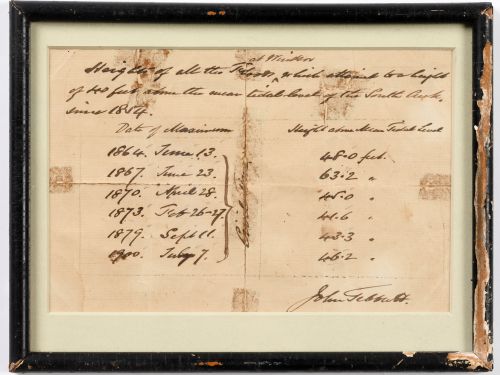 at Windsor
Heights of all the Floods, which attained to a height
of 40 feet above the mean tidal level of the South Creek,
since 1854.
Date of Maximum Height above Mean Tidal Level
1864. June 13. 48.0 feet.
1867. June 23. 63.2 "
1870. April 28. 45.0 "
1873. Feb 26-27. 41.6 "
1879. Sept 11. 43.3 "
1900. July 7. 46.2 "
John Tebbutt.